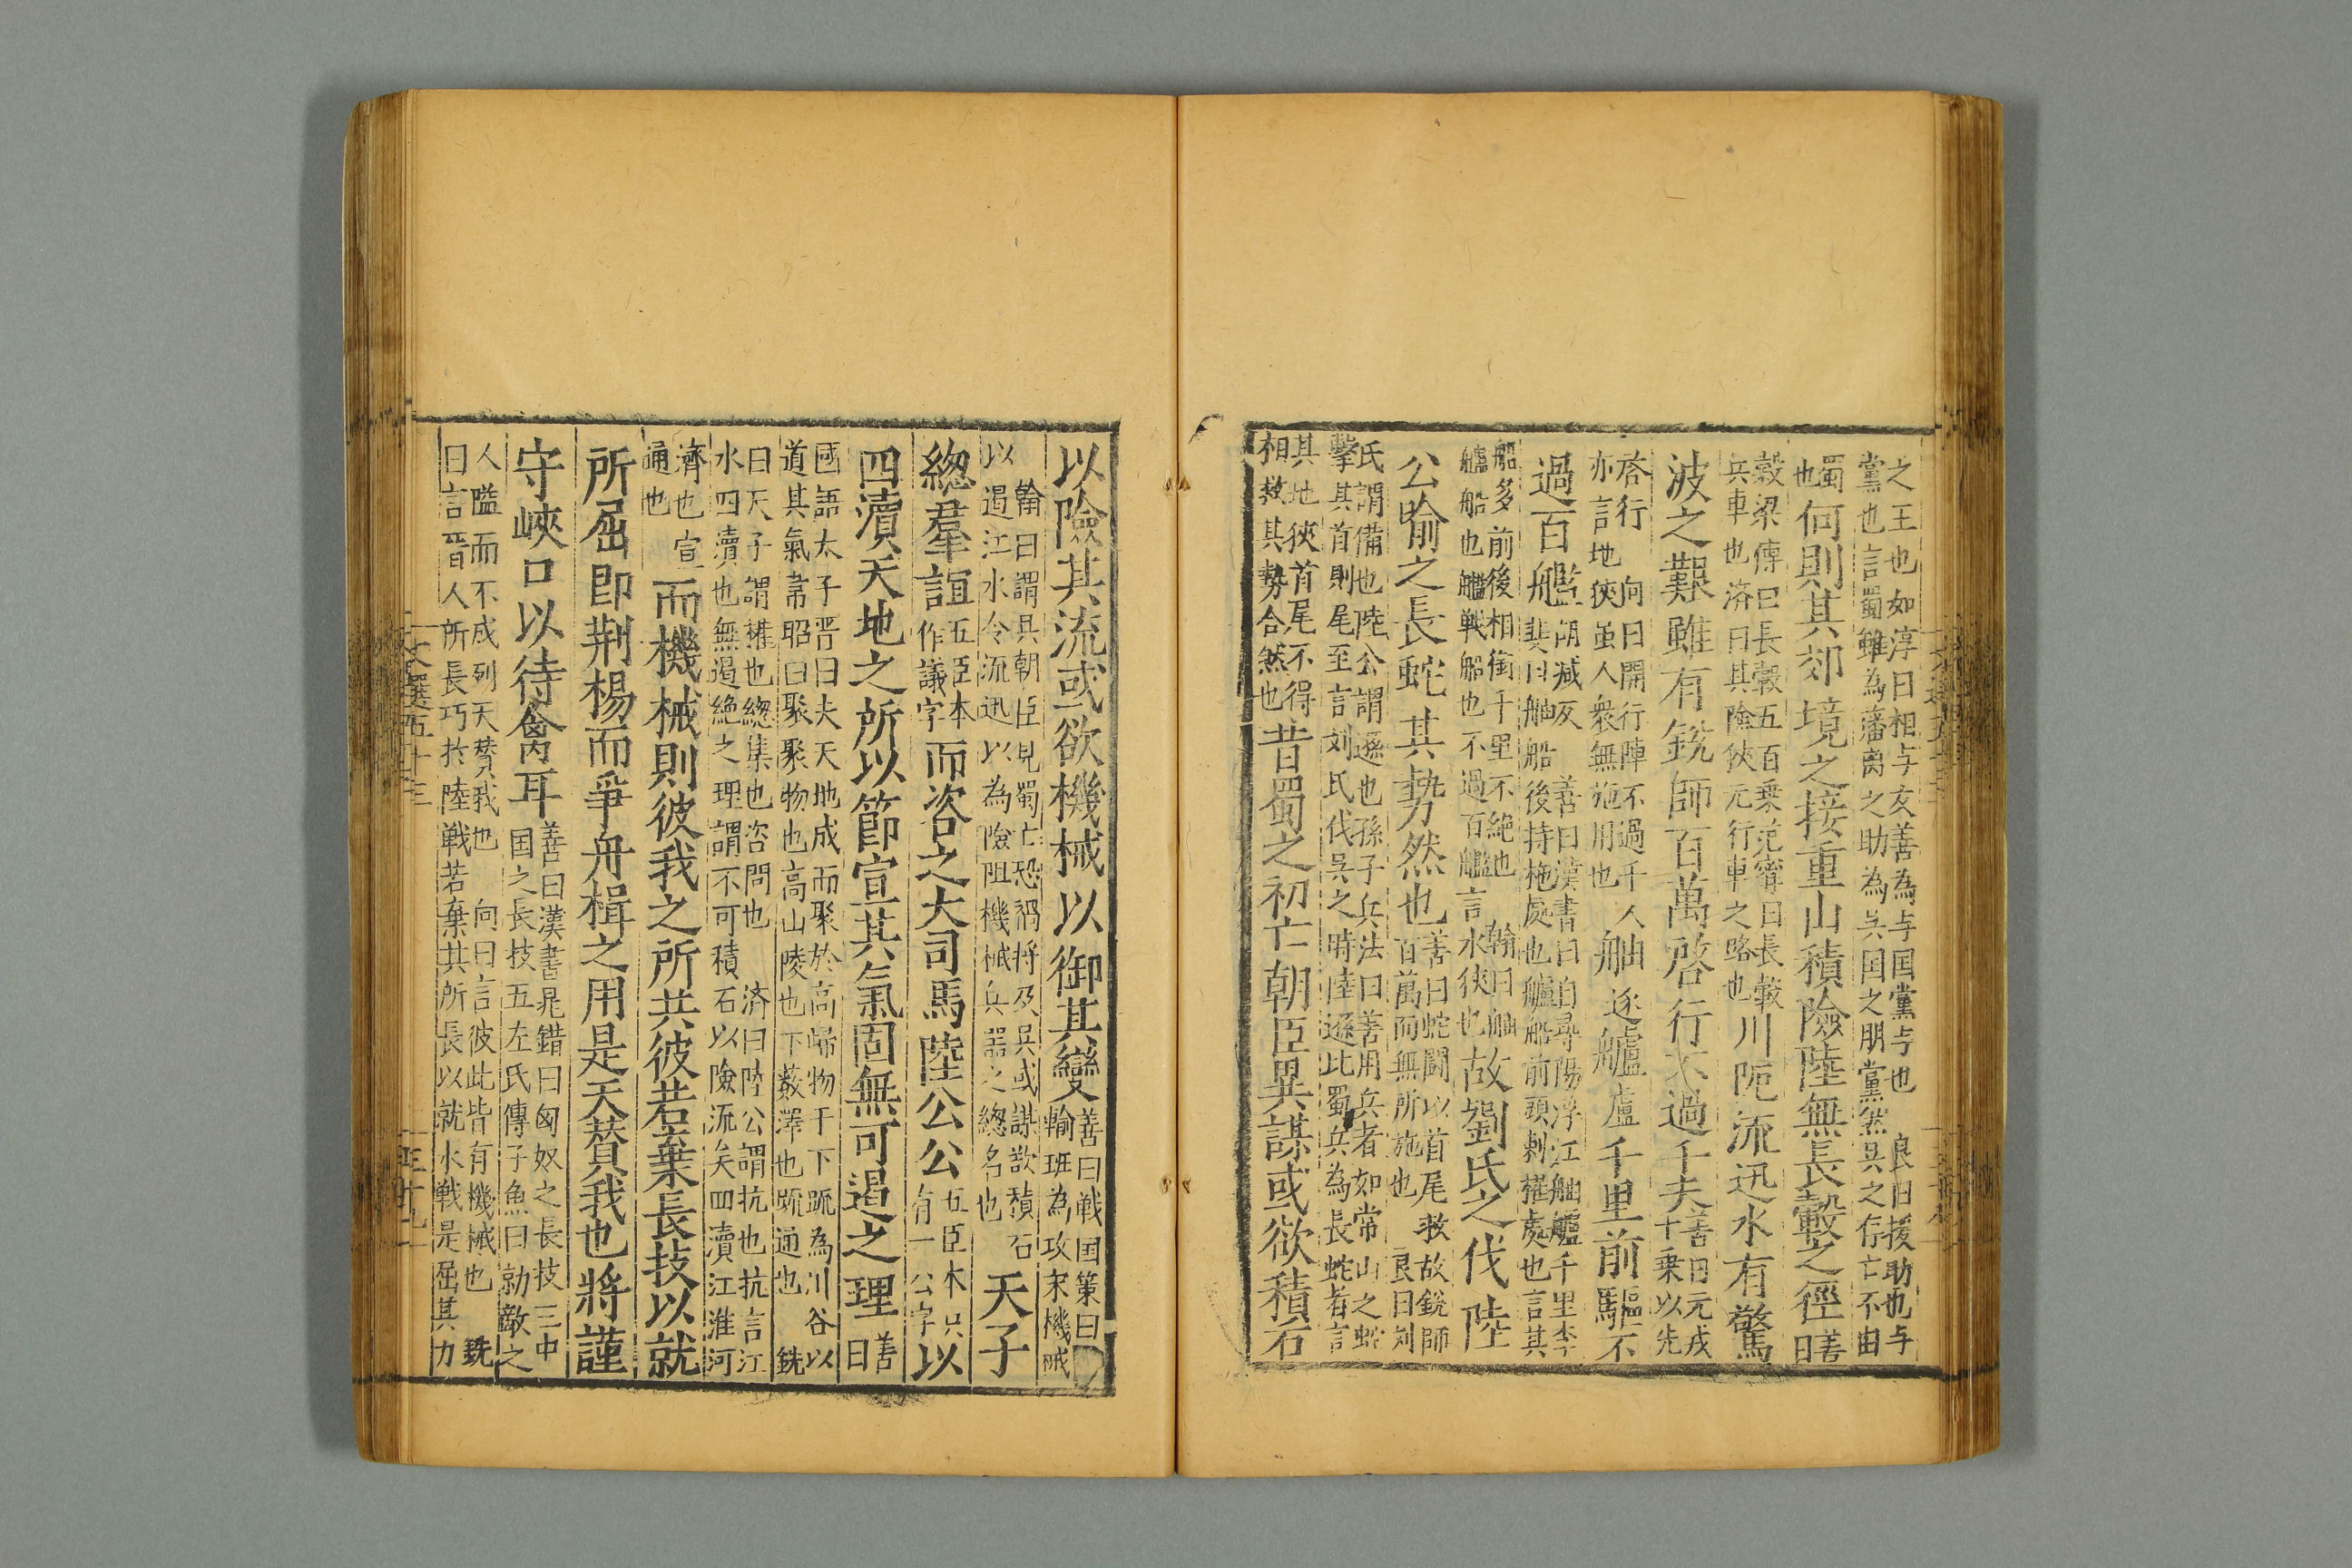 之王也如淳曰相与友善為与国黨与也　良曰援助也与
黨也言蜀雖為藩离之助為吴国之朋黨然吴之存亡不由
蜀也何則其郊境之接重山積險陸無長轂之徑善曰
穀梁傳曰長轂五百乗范甯曰長轂
兵車也済曰其險狹无行車之路也川阨流迅水有驚
波之艱雖有銳師百萬啓行不過千夫善曰元戎十乗以先
啓行　向曰開行陣不過千人
亦言地狹虽人衆無施用也舳逐艫盧千里前驅不
過百艦胡减反　善曰漢書曰自尋陽浮江舳艫千里李
斐曰舳船後持柂處也艫船前頭刺櫂處也言其
船多前後相銜千里不絶也　翰曰舳
艫船也艦戦船也不過百艦言水狹也故劉氏之伐陸
公喻之長蛇其勢然也善曰蛇鬭以首尾救故銳師
百萬而無所施也　良曰刘
氏謂備也陸公謂遜也孫子兵法曰善用兵者如常山之蛇
擊其首則尾至言刘氏伐吴之時陸遜比蜀兵為長蛇者言
其地狹首尾不得
相救其勢合然也昔蜀之初亡朝臣異謀或欲積石
以險其流或欲機械以御其變善曰戦国策曰
輸班為攻宋機械
翰曰謂具朝臣見蜀亡恐禍将及吴或謀欲積石
以遏江水令流迅以為險阻機械兵器之總名也天子
總羣誼五臣本作議字而咨之大司馬陸公公五臣本只有一公字以
四瀆天地之所以節宣其氣固無可遏之理善曰
國語太子晋曰夫天地成而聚於高歸物于下䟽為川谷以
道其氣韋昭曰聚聚物也高山陵也下薮澤也䟽通也　銑
曰天子謂權也總集也咨問也　済曰陸公謂抗也抗言江
水四瀆也無遏絶之理謂不可積石以險流矣四瀆江淮河
濟也宣
通也而機械則彼我之所共彼若棄長技以就
所屈即荆楊而爭舟楫之用是天賛我也將謹
守峽口以待禽耳善曰漢書晁錯曰匈奴之長技三中
国之長技五左氏傳子魚曰勍敵之
人隘而不成列天賛我也　向曰言彼此皆有機械也　銑
曰言晋人所長巧扵陸戦若棄其所長以就水戦是屈其力
文選五十三
三十九